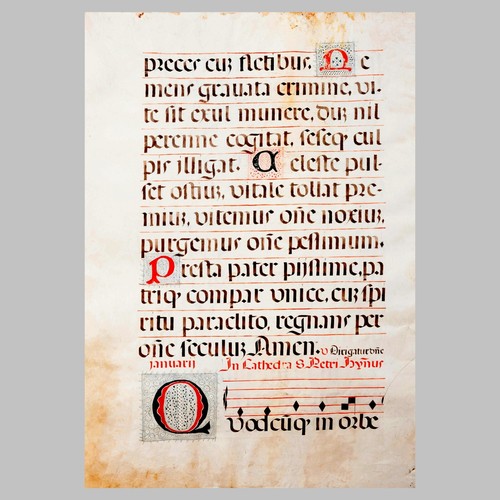 preces cuȝ fletibus. Ne
mens gravata crimine, vi-
te sit exul munere, duȝ nil
perenne cogitat, seseqȝ cul
pis illigat. Celeste pul-
set ostiuȝ, vitale tollat pre-
miuȝ, vitemus oñe noxiuȝ,
purgemus oñe pessimum.
Presta pater pijssime, pa
triqȝ compar vnice, cuȝ spi
ritu paraclito, regnans per
oñe seculuȝ Amen. v Dirigatur dñe
januarij In Cathedra S. Petri. Hym̃us
Vodcũqȝ in orbe